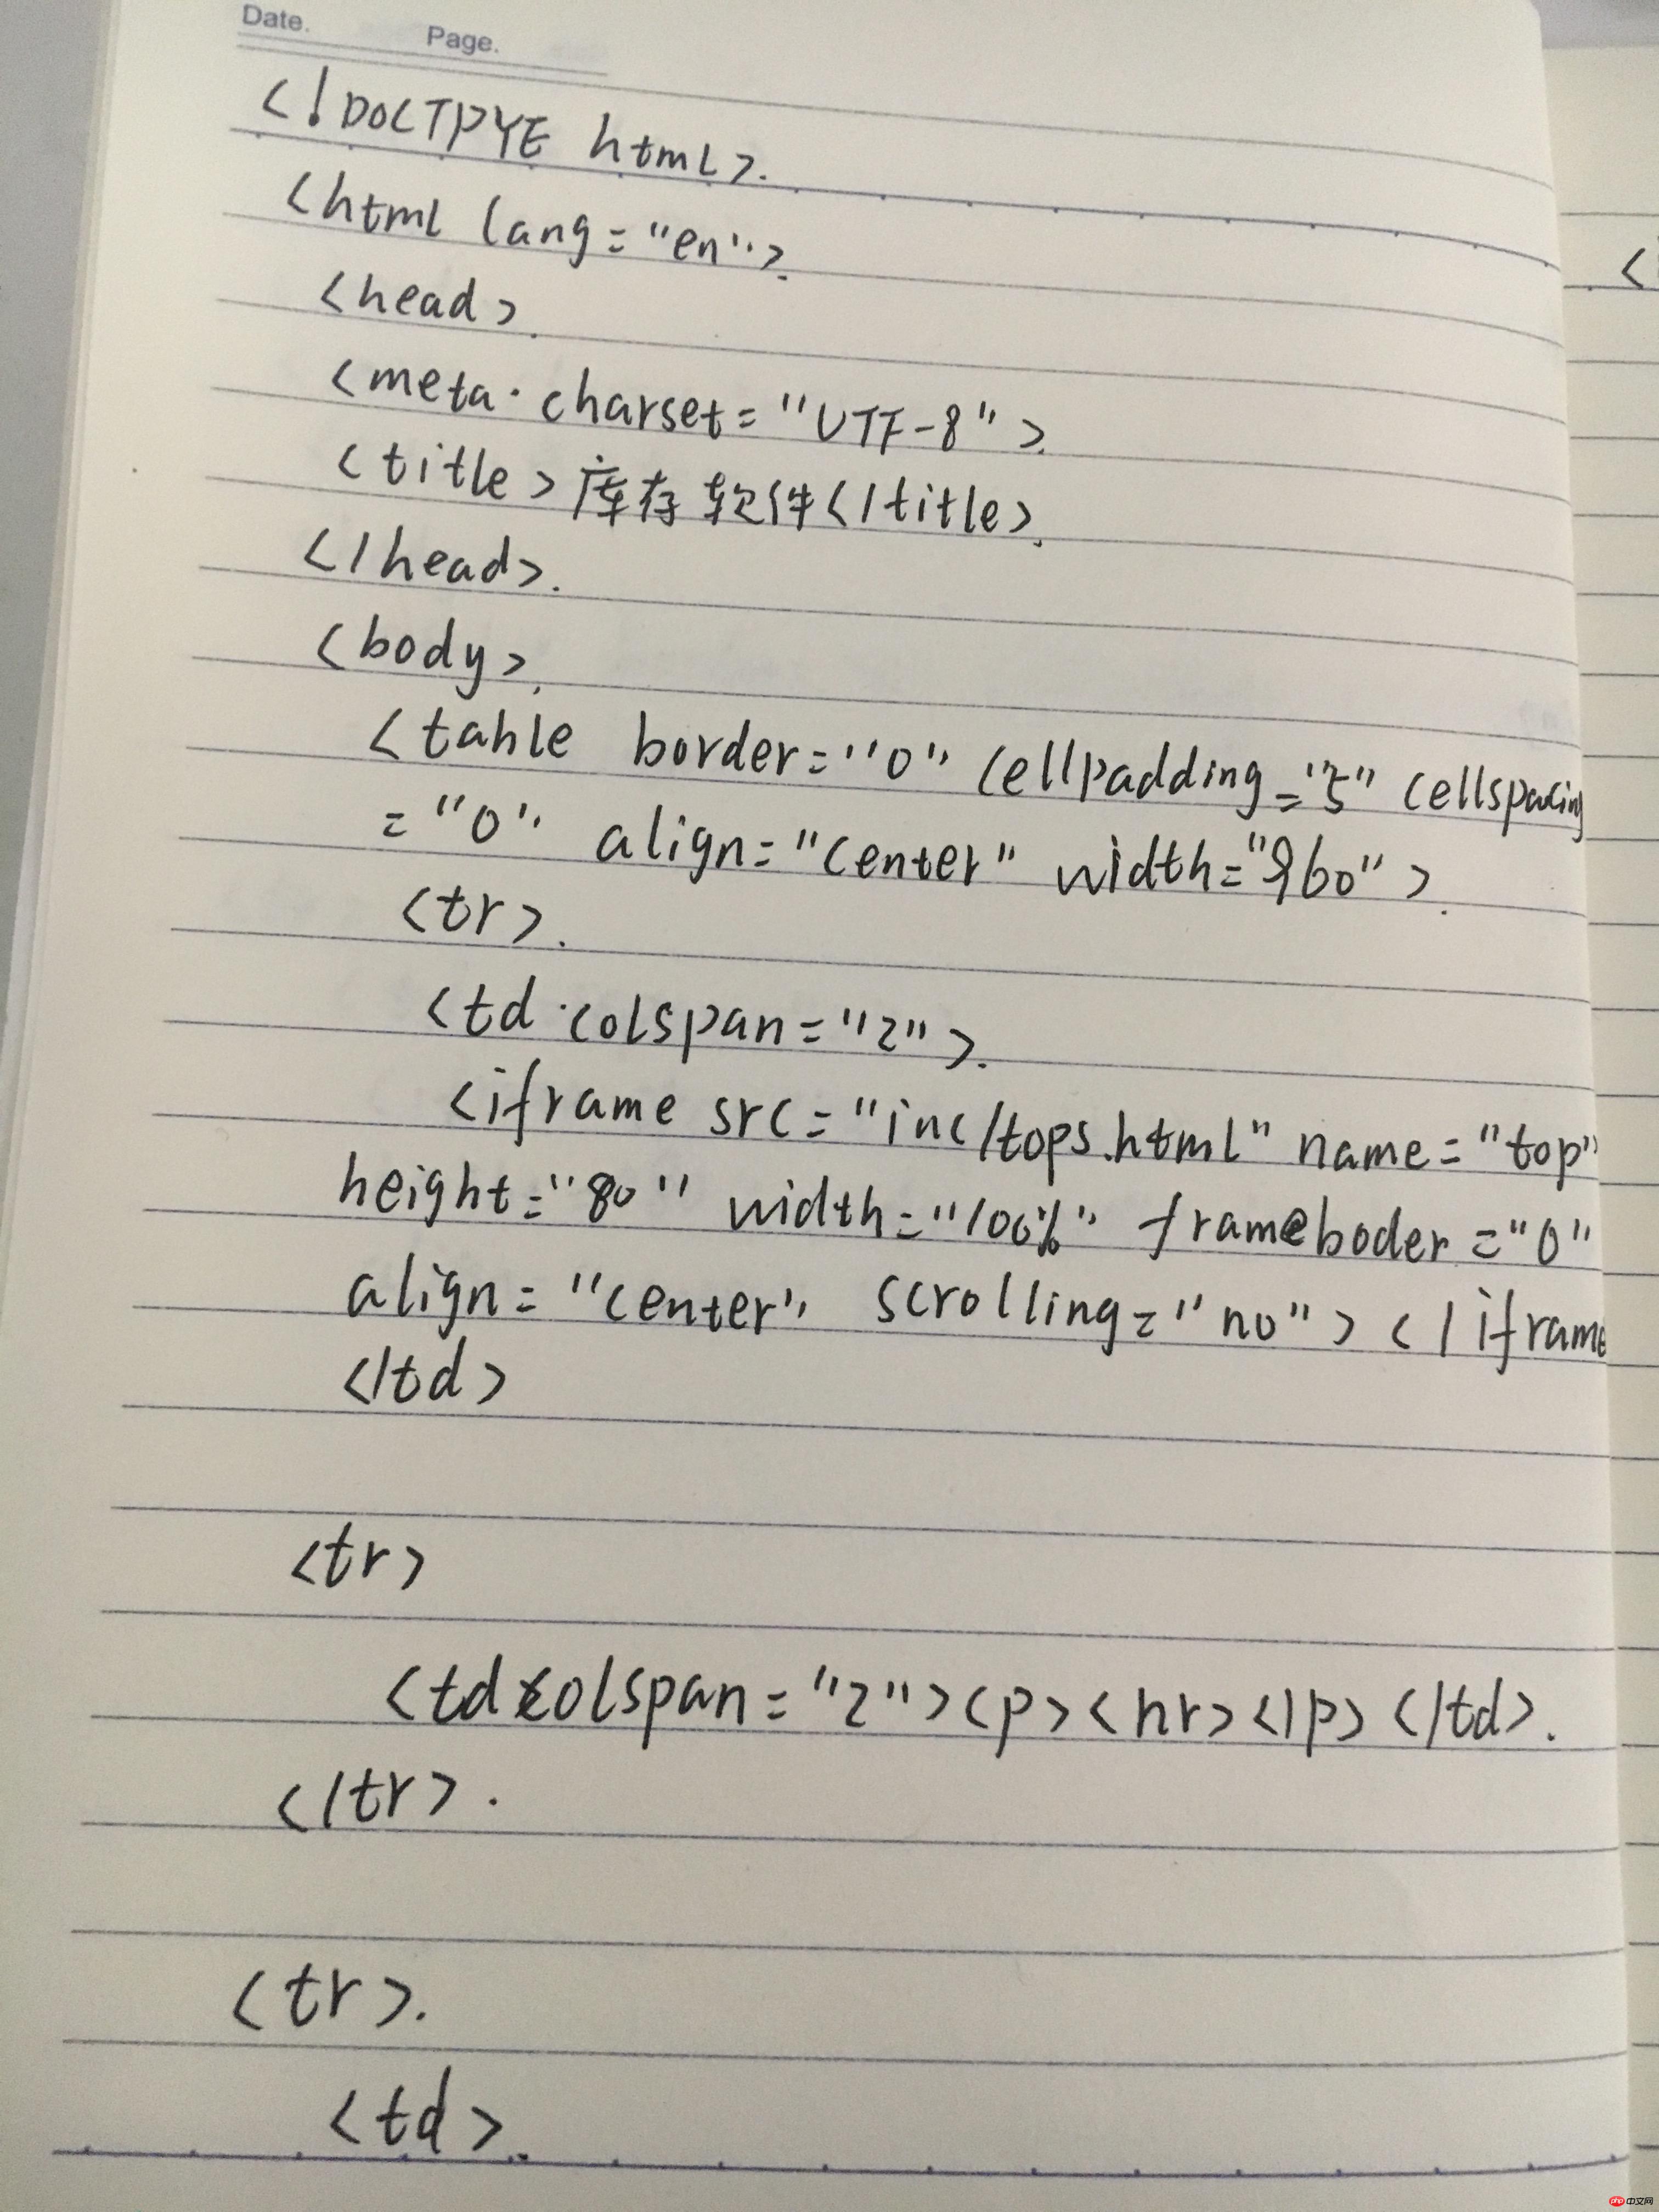 Date.
Page.
<!DOCTPYE html>.
<html lang="en">.
<head>.
<meta·charset="UTF-8">.
<title>库存软件</title>.
</head>.
<body>.
<table border="0" cellpadding="5" cellspacing
="0" align="center" width="960">.
<tr>.
<td·colspan="2">.
<iframe src="inc/tops.html" name="top"
height="80" width="100%" frameboder="0"
align="center" scrolling="no"></iframe
</td>
<tr>
<td colspan="2"><p><hr></p></td>.
</tr>.
<tr>.
<td>.
<
php 中文网